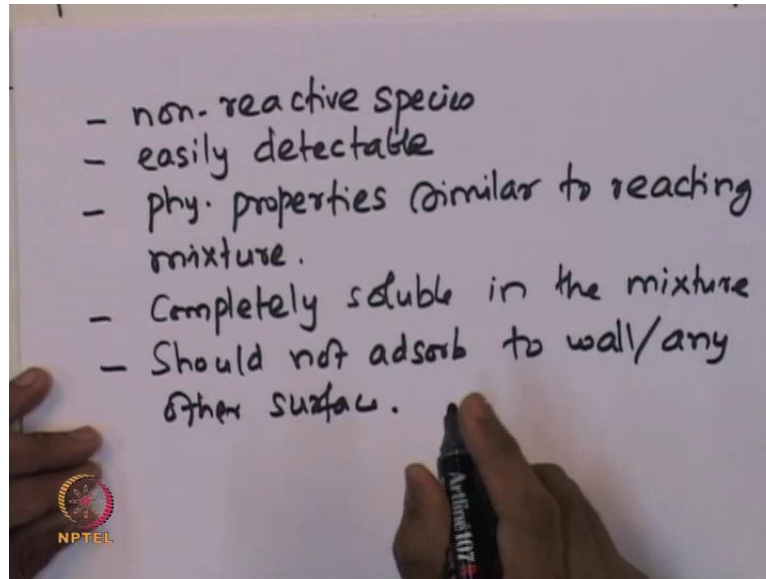 - non-reactive species
- easily detectable
- phy. properties similar to reaching
mixture.
- Completely soluble in the mixture
- Should not adsorb to wall/any
other surface.
Artline 107
NPTEL